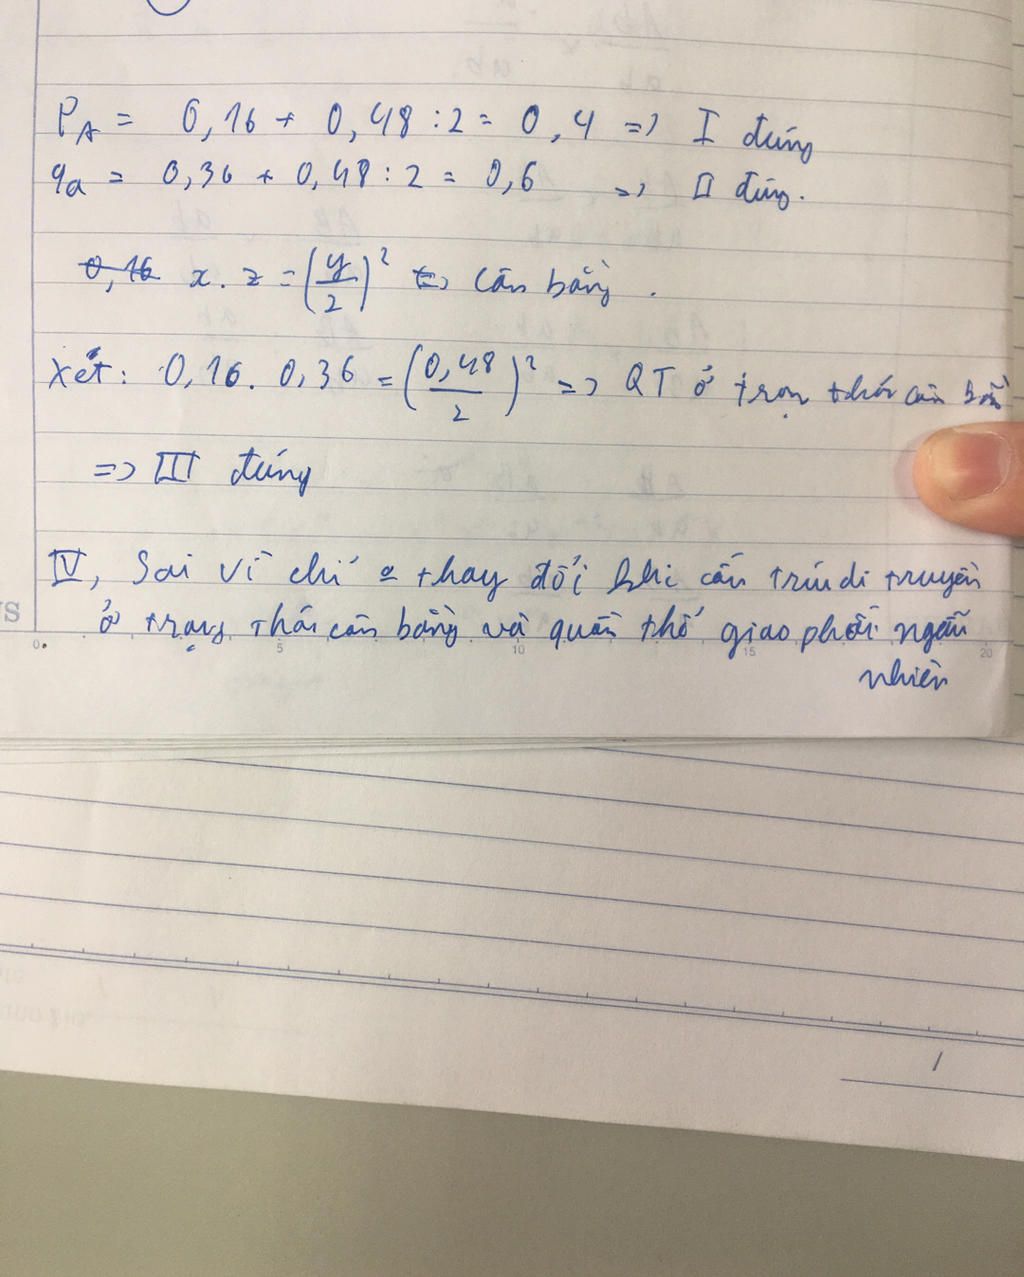 P_A = 0,16 + 0,48 : 2 = 0,4 => I đúng
q_a = 0,36 + 0,48 : 2 = 0,6 => II đúng.
0,16 x. z = (y/2)² <=> Cân bằng.
Xét: 0,16. 0,36 = (0,48/2)² => QT ở trạng thái cân bằng
=> III đúng
IV, Sai vì chỉ thay đổi khi cấu trúc di truyền
ở trạng thái cân bằng và quần thể giao phối ngẫu
nhiên
0. 5 10 15 20